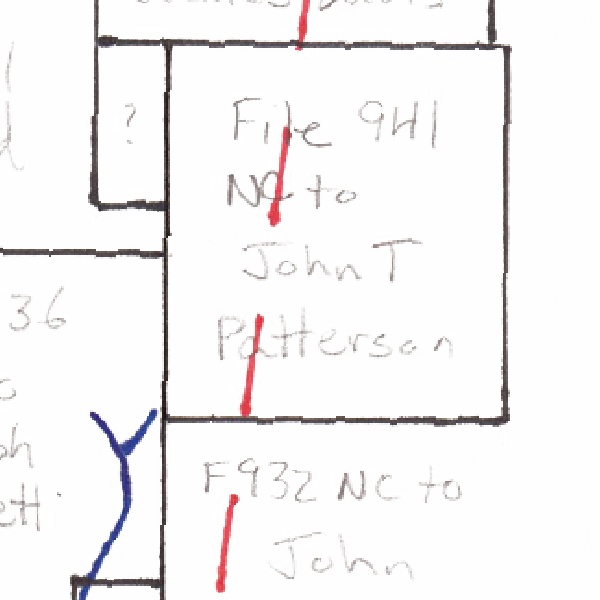 ?
File 941
NC to
John T
Patterson
36
F932 NC to
John